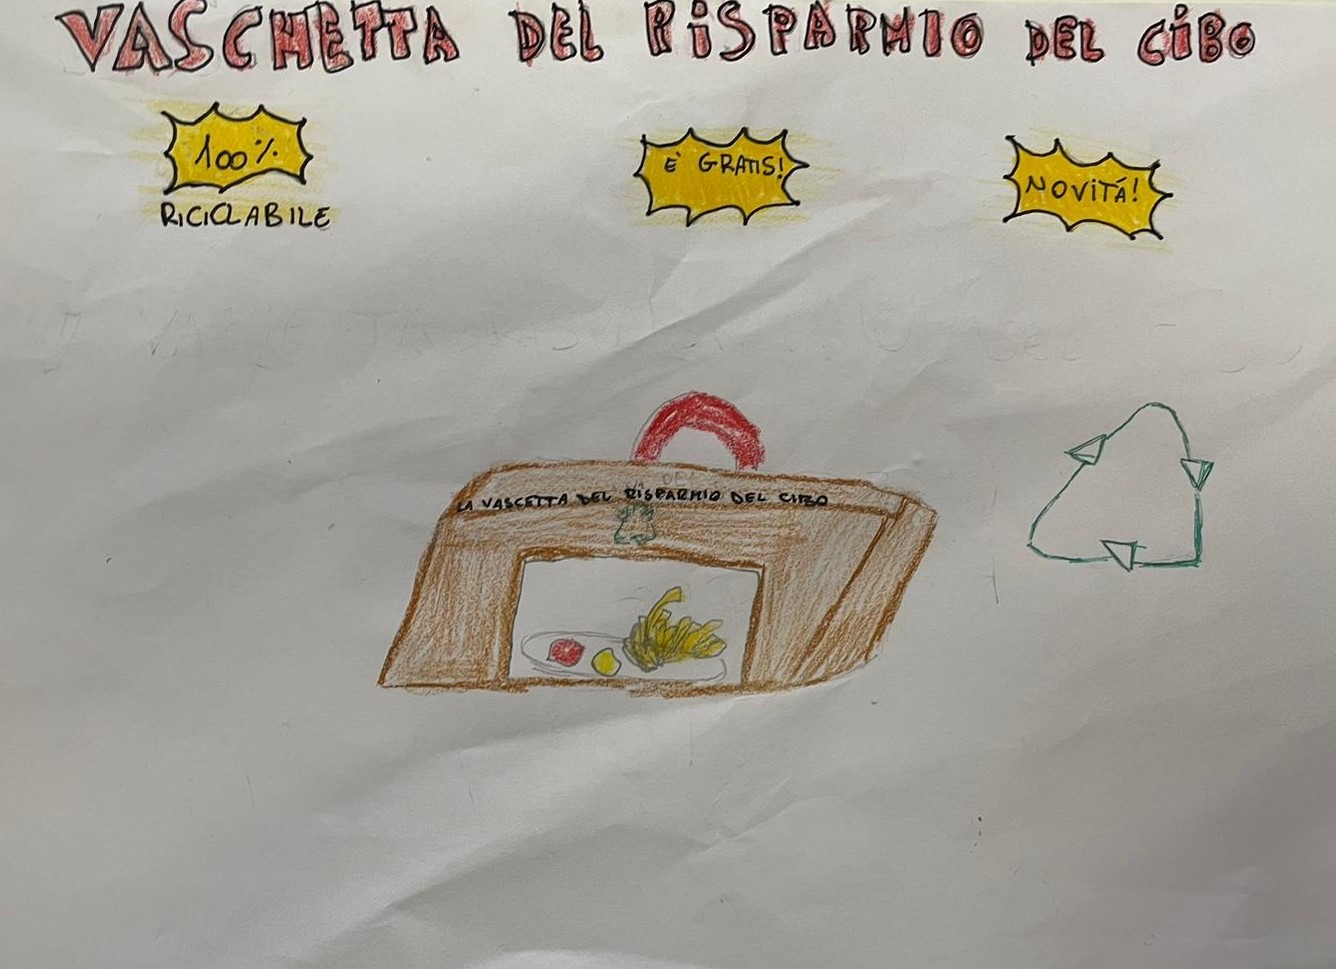 VASCHETTA DEL RISPARMIO DEL CIBO
100%
RICICLABILE
È GRATIS!
NOVITÁ!
LA VASCETTA DEL RISPARMIO DEL CIBO